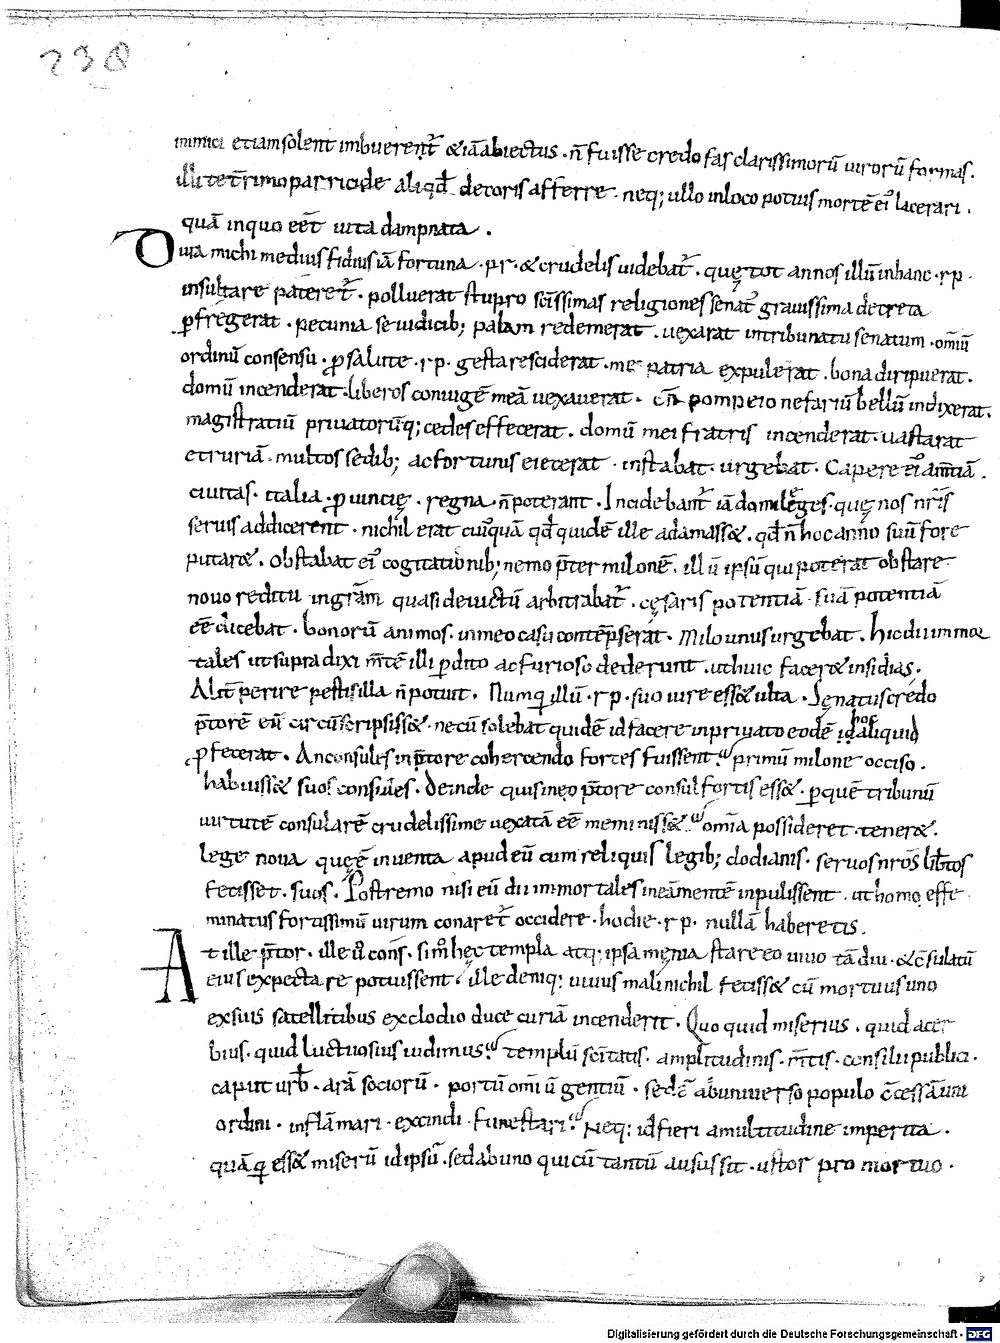 238
inimici etiam solent imbuerent᷑ & iā abiectus · n̄ fuisse credo fas clarissimorū uirorū formas.
illi tet̄rimo parricide aliqd̄ decoris afferre · neq; ullo in loco potuis mortē ei᷒ lacerari ·
quā in quo eēt uita dampnata .
Dura michi medius fidius iā fortuna · p̄r · & crudelis uidebat᷑ · quę tot annos illū in hanc · r p ·
insultare pateret᷑ · polluerat stupro sc̄issimas religiones senat᷒ grauissima decreta
ꝑfregerat · pecunia se iudicib; palam redemerat · uexarat in tribunatu senatum · om̄iū
ordinū consensu · ꝓ salute · r p · gesta resciderat · me patria expulerat · bona diripuerat ·
domū incenderat · liberos coniugē meā uexauerat · Cn̄ pompeio nefariū bellū indixerat.
magistratiū priuatorūq; cedes effecerat . domū mei fratris incenderat · uastarat
etruriā · multos sedib; ac fortunis eiecerat · instabat · urgebat · Capere ei᷒ am̄tiā .
ciuitas · italia · ꝓuincię · regna · n̄ poterant · Incidebant᷑ iā domi leges · quę nos nr̄is
seruis addicerent · nichil erat cui᷒quā qd̄ quidē ille adamass& · qd̄ n̄ hoc anno suū fore
putar& · Obstabat ei᷒ cogitationib; nemo p̄ter milonē · illū ipsū qui poterat obstare
nouo reditu in gr̄am quasi deuictū arbitrabat᷑ · cęsaris potentiā · suā potentiā
eē dicebat · bonorū animos · in meo casu contēpserat · Milo unus urgebat . Hic dii immor
tales ut supra dixi m̄tē illi ꝑdito ac furioso dederunt · ut huic facer& insidias ·
Alit̄ perire pestis illa n̄ potuit · Numq̄ illū · r p · suo iure ess& ulta · Senatus credo
p̄torē eū circūscripsiss& · ne cū solebat quidē id facere in priuato eodē hoc aliquid
ꝓfecerat · An consules in p̄tore cohercendo fortes fuissent? primū milone occiso ·
habuiss& suos consules · Deinde quis in eo p̄tore consul fortis ess& · ꝑ quē tribunū
uirtutē consularē crudelissime uexatā eē meminiss&? om̄ia possideret · tener& ·
lege noua quę ē inuenta apud eū cum reliquis legib; clodianis · seruos nr̄os lib̄tos
fecisset · suos · Postremo nisi eū dii immortales in eā mentē inpulissent · ut homo effe
minatus fortissimū uirum conaret᷑ occidere · hodie · r p · nullā haberetis .
At ille p̄tor · ille ū cons̄ · sim᷒ hęc templa atq; ipsa męnia stare eo uiuo tā diu · & c̄sulatū
eius expectare potuissent? ille deniq; uiuus mali nichil feciss& cū mortuus uno
ex suis satellitibus ex clodio duce curiā incenderit . Quo quid miserius · quid acer
bius · quid luctuosius uidimus? templū sc̄itatis · amplitudinis · m̄tis · consilii publici ·
caput urb̄ · arā sociorū · portū omniū gentiū · sedē ab uniuerso populo c̄cessā uni
ordini · inflāmari · excindi · funestari? Neq; id fieri a multitudine imperita ·
quāq̄ ess& miserū id ipsū · sed ab uno qui cū tantū ausus sit · ustor pro mortuo ·
Digitalisierung gefördert durch die Deutsche Forschungsgemeinschaft · DFG